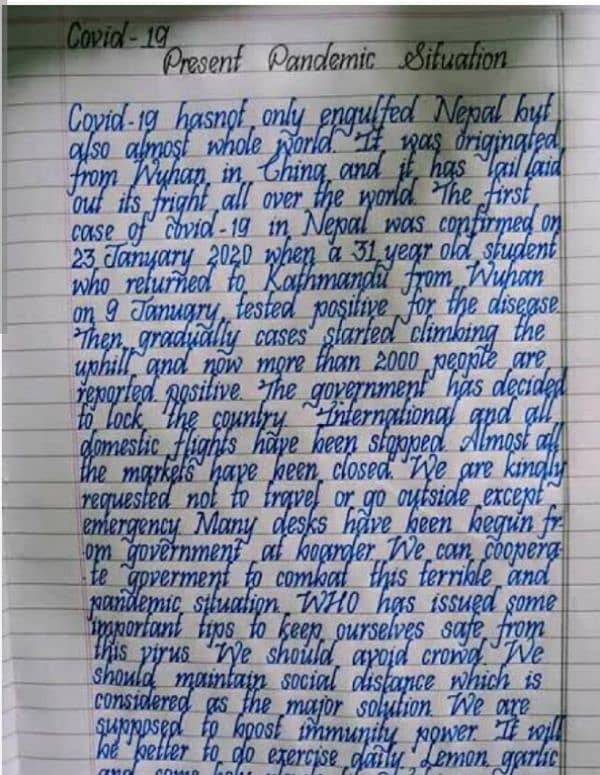 Covid-19
Present Pandemic Situation
Covid-19 hasnot only engulfed Nepal but
also almost whole world. It was originated
from Wuhan in China and it has lail laid
out its fright all over the world. The first
case of covid-19 in Nepal was confirmed on
23 January 2020 when a 31 year old student
who returned to Kathmandu from Wuhan
on 9 January, tested positive for the disease.
Then gradually cases started climbing the
uphill and now more than 2000 people are
reported positive. The government has decided
to lock the country International and all
domestic flights have been stopped. Almost all
the markets have been closed. We are kindly
requested not to travel or go outside except
emergency. Many desks have been begun fr-
om government at boarder. We can coopera-
-te goverment to combat this terrible and
pandemic situation. WHO has issued some
important tips to keep ourselves safe from
this virus We should avoid crowd. We
should maintain social distance which is
considered as the major solution. We are
supposed to boost immunity power. It will
be better to do exercise daily. Lemon, garlic
and some